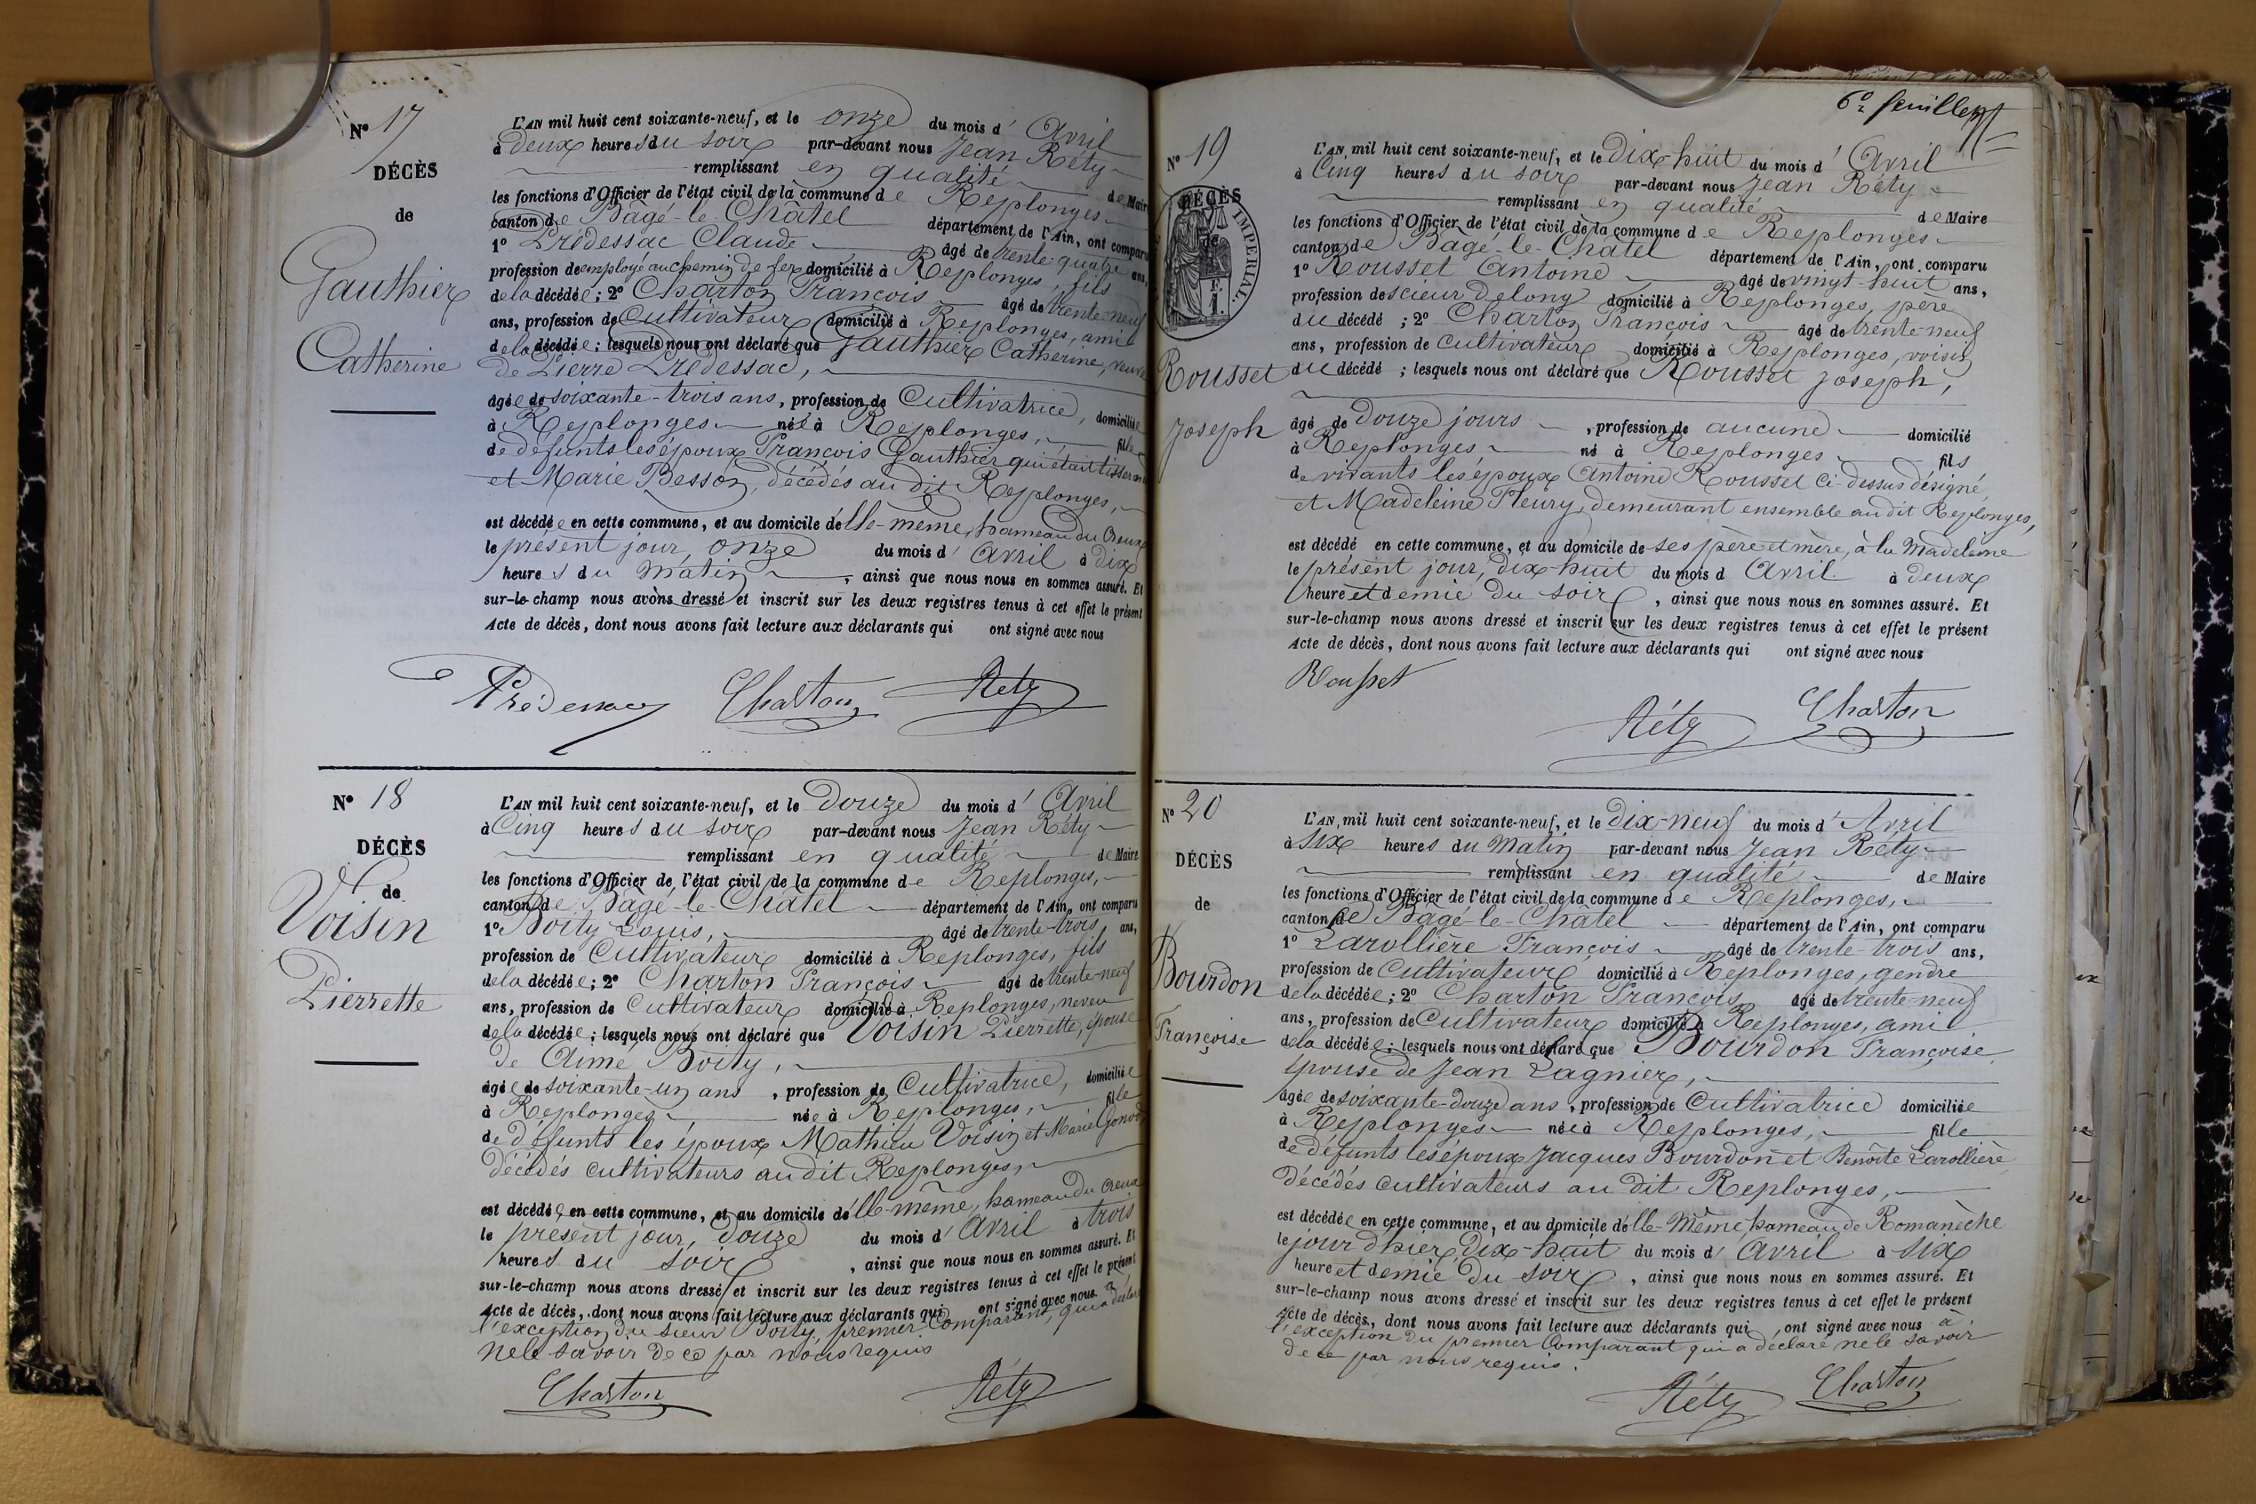 N° 17
DÉCÈS
de
Gauthier
Catherine
L'AN mil huit cent soixante-neuf, et le onze du mois d' Avril
à deux heures du soir par-devant nous Jean Réty
remplissant en qualité de Maire
les fonctions d'Officier de l'état civil de la commune de Replonges
canton de Bâgé-le-Châtel département de l'Ain, ont comparu
1° Prédessac Claude âgé de trente-quatre ans,
profession de employé au chemin de fer domicilié à Replonges, fils
de la décédée; 2° Charton François âgé de trente-neuf
ans, profession de Cultivateur domicilié à Replonges, ami
de la décédée; lesquels nous ont déclaré que Gauthier Catherine, veuve
de Pierre Prédessac,
âgée de soixante-trois ans, profession de Cultivatrice, domiciliée
à Replonges née à Replonges, fille
de défunts les époux François Gauthier qui était tisserand
et Marie Besson, décédés au dit Replonges,
est décédée en cette commune, et au domicile d'elle-même, hameau du Creux
le présent jour, onze du mois d' Avril à dix
heures du matin, ainsi que nous nous en sommes assuré. Et
sur-le-champ nous avons dressé et inscrit sur les deux registres tenus à cet effet le présent
Acte de décès, dont nous avons fait lecture aux déclarants qui ont signé avec nous
Prédessac Charton Réty
N° 18
DÉCÈS
de
Voisin
Pierrette
L'AN mil huit cent soixante-neuf, et le Douze du mois d' Avril
à Cinq heures du soir par-devant nous Jean Réty
remplissant en qualité de Maire
les fonctions d'Officier de l'état civil de la commune de Replonges,
canton de Bâgé-le-Châtel département de l'Ain, ont comparu
1° Boity Louis, âgé de trente-trois ans,
profession de Cultivateur domicilié à Replonges, fils
de la décédée; 2° Charton François âgé de trente-neuf
ans, profession de Cultivateur domicilié à Replonges, neveu
de la décédée; lesquels nous ont déclaré que Voisin Pierrette, épouse
de Aimé Boity,
âgée de soixante-un ans, profession de Cultivatrice, domiciliée
à Replonges née à Replonges, fille
de défunts les époux Mathieu Voisin et Marie Gonod
décédés cultivateurs au dit Replonges,
est décédée en cette commune, et au domicile d'elle-même, hameau du Creux
le présent jour, Douze du mois d' Avril à trois
heures du soir, ainsi que nous nous en sommes assuré. Et
sur-le-champ nous avons dressé et inscrit sur les deux registres tenus à cet effet le présent
Acte de décès, dont nous avons fait lecture aux déclarants qui ont signé avec nous à
l'exception du sieur Boity, premier Comparant, qui a déclaré
ne le savoir de ce par nous requis
Charton Réty
6e feuillet
N° 19
DÉCÈS
de
IMPERIAL
Rousset
Joseph
L'AN mil huit cent soixante-neuf, et le Dix-huit du mois d' Avril
à Cinq heures du soir par-devant nous Jean Réty
remplissant en qualité de Maire
les fonctions d'Officier de l'état civil de la commune de Replonges
canton de Bâgé-le-Châtel département de l'Ain, ont comparu
1° Rousset Antoine âgé de vingt-huit ans,
profession de scieur de long domicilié à Replonges, père
du décédé; 2° Charton François âgé de trente-neuf
ans, profession de cultivateur domicilié à Replonges, voisin
du décédé; lesquels nous ont déclaré que Rousset Joseph,
âgé de douze jours, profession de aucune domicilié
à Replonges, né à Replonges fils
de vivants les époux Antoine Rousset ci-dessus désigné,
et Madeleine Fleury, demeurant ensemble au dit Replonges,
est décédé en cette commune, et au domicile de ses père et mère, à la Madeleine
le présent jour, dix-huit du mois d Avril à deux
heure et demie du soir, ainsi que nous nous en sommes assuré. Et
sur-le-champ nous avons dressé et inscrit sur les deux registres tenus à cet effet le présent
Acte de décès, dont nous avons fait lecture aux déclarants qui ont signé avec nous
Rousset
Réty Charton
N° 20
DÉCÈS
de
Bourdon
Françoise
L'AN mil huit cent soixante-neuf, et le Dix-neuf du mois d' Avril
à six heures du Matin par-devant nous Jean Réty
remplissant en qualité de Maire
les fonctions d'Officier de l'état civil de la commune de Replonges,
canton de Bâgé-le-Châtel département de l'Ain, ont comparu
1° Larollière François âgé de trente-trois ans,
profession de Cultivateur domicilié à Replonges, gendre
de la décédée; 2° Charton François âgé de trente-neuf
ans, profession de Cultivateur domicilié à Replonges, ami
de la décédée; lesquels nous ont déclaré que Bourdon Françoise
épouse de Jean Lagnier,
âgée de soixante-douze ans, profession de Cultivatrice domiciliée
à Replonges née à Replonges, fille
de défunts les époux Jacques Bourdon et Benoîte Larollière
décédés cultivateurs au dit Replonges,
est décédée en cette commune, et au domicile d'elle-Même, hameau de Romanèche
le jour d'hier, Dix-huit du mois d' Avril à six
heure et demie du soir, ainsi que nous nous en sommes assuré. Et
sur-le-champ nous avons dressé et inscrit sur les deux registres tenus à cet effet le présent
Acte de décès, dont nous avons fait lecture aux déclarants qui ont signé avec nous à
l'exception du premier Comparant qui a déclaré ne le savoir
de ce par nous requis.
Réty Charton